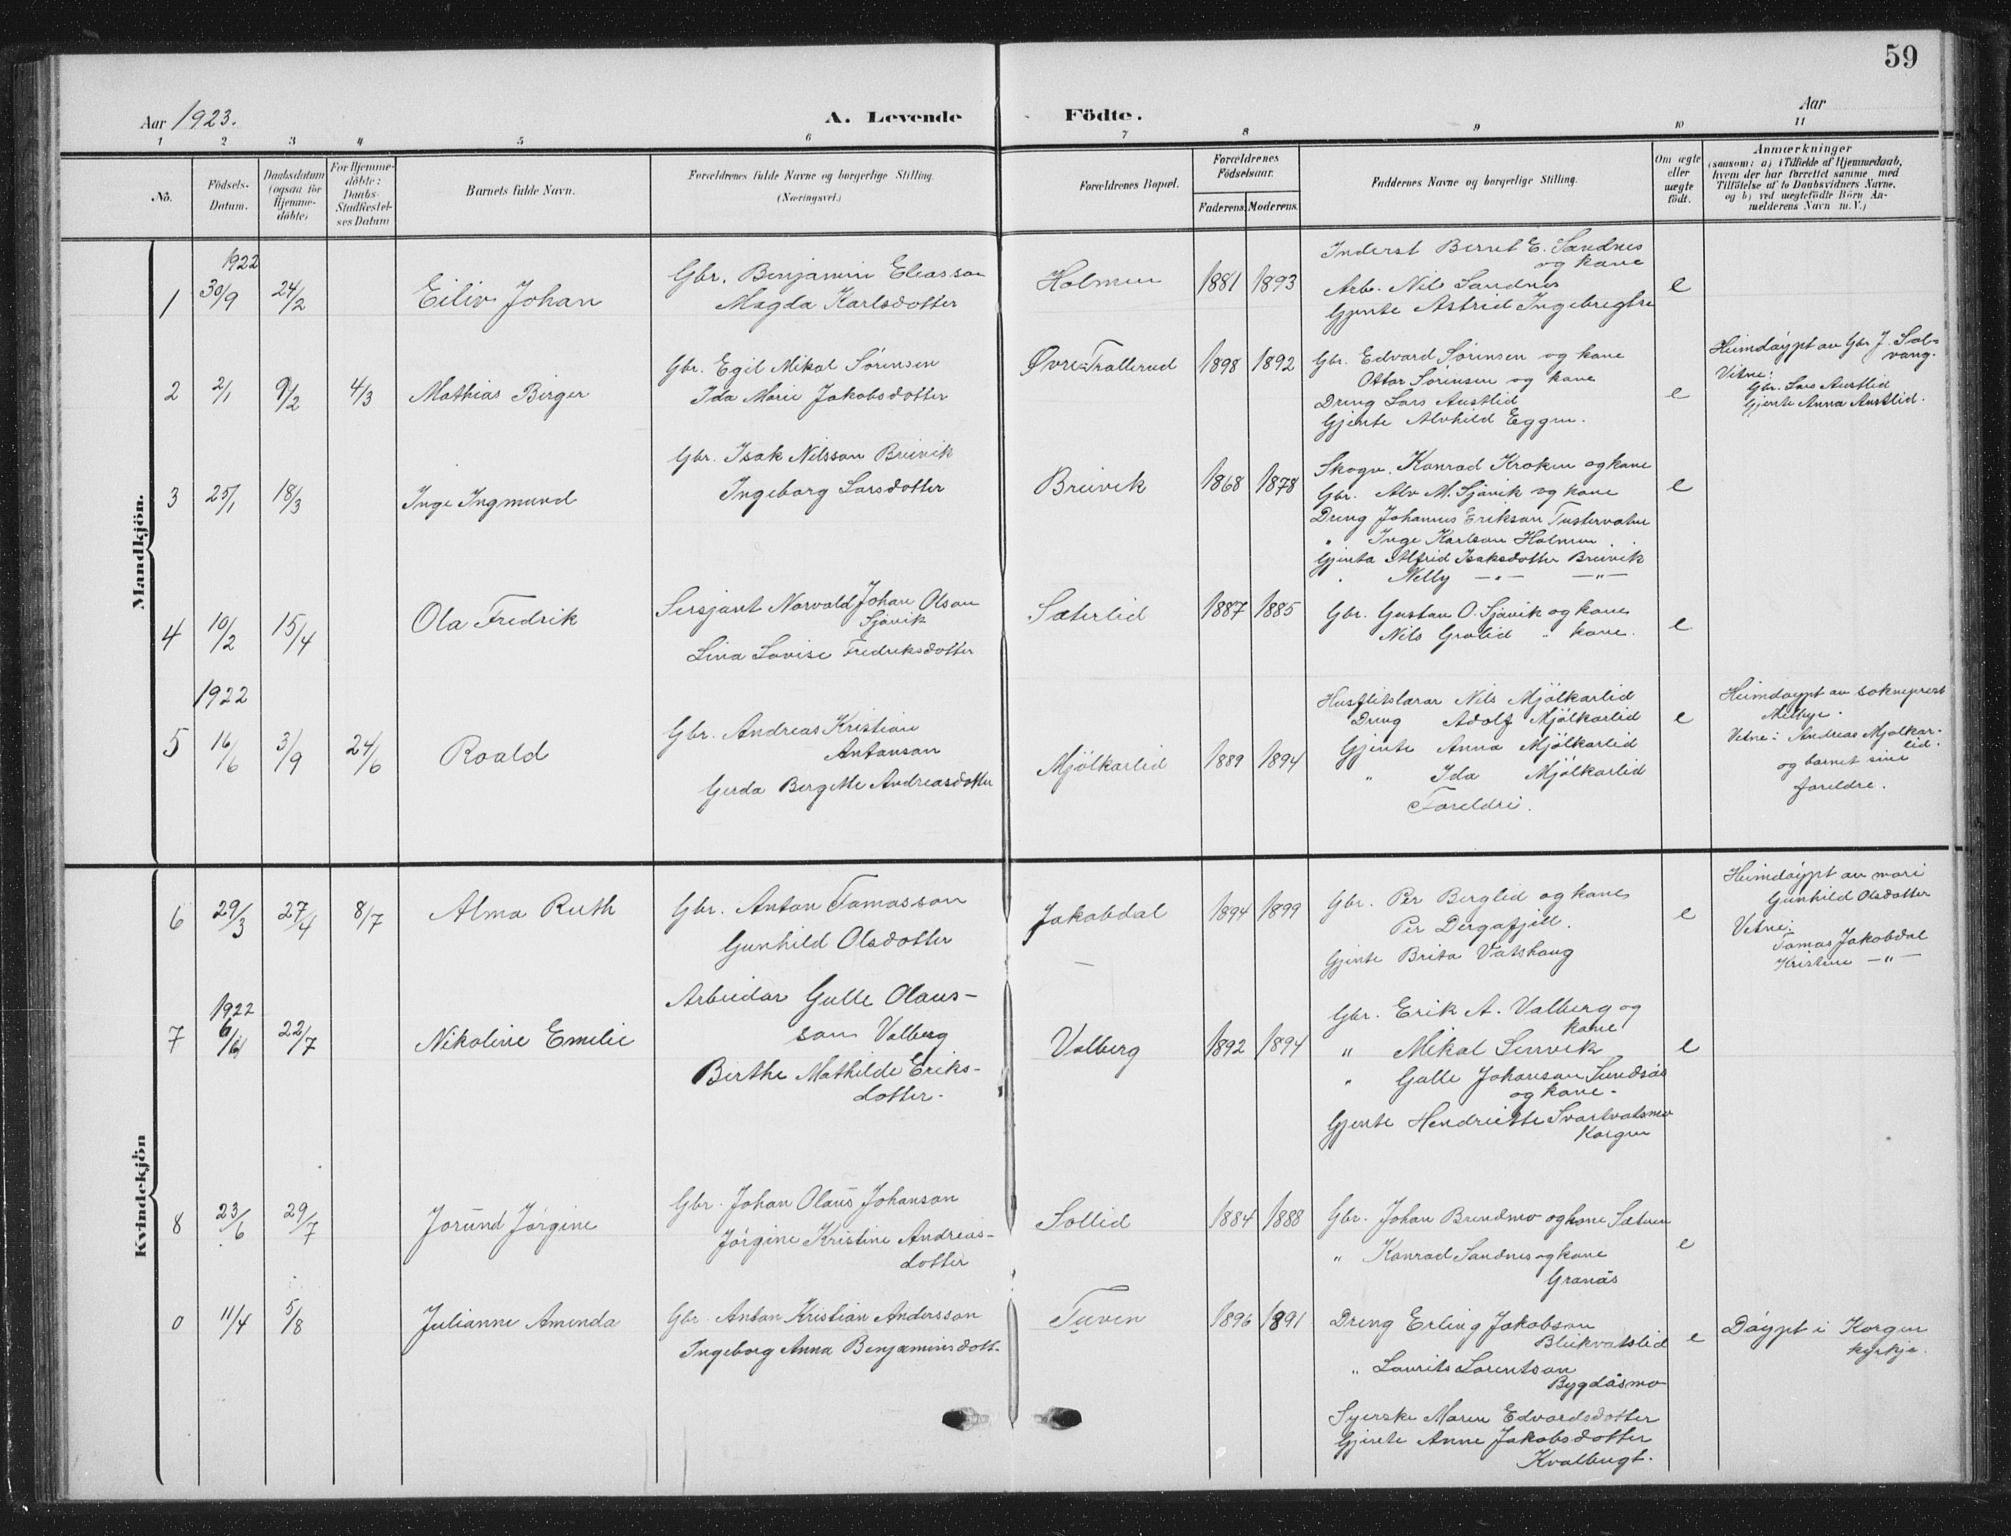 59
Aar 1923. A. Levende Födte. Aar
1 2 3 4 5 6 7 8 9 10 11
No.
Födsels-Datum.
Daabsdatum (ogsaa for Hjemme-döbte)
For Hjemme-döbte: Daabs-Stadfæstel-ses Datum
Barnets fulde Navn.
Forældrenes fulde Navne og borgerlige Stilling. (Næringsvei.)
Forældrenes Bopæl.
Forældrenes Födselsaar.
Faderens. Moderens.
Faddernes Navne og borgerlige Stilling.
Om ægte eller uægte født.
Anmærkninger
(saasom: a) i Tilfælde af Hjemmedaab, hvem der har forrettet samme, med Tilföielse af to Daabsvidners Navne, og b) ved uægtefödte Börn An-melderens Navn m. V.)
Mandkjön.
1922
1 30/9 24/2 Eiliv Johan
Gbr. Benjamin Eleasson
Magda Karlsdotter
Holmen 1881 1893
Inderst Bernt E. Sandnes
og kone
Arb. Nils Sandnes
Gjente Astrid Ingebregtse
e
2 2/1 9/2 4/3 Mathias Birger
Gbr. Egil Mikal Sörensen
Ida Marie Jakobsdotter
Øvre-Trallerud 1898 1892
Gbr. Edvard Sørensen og kone
Ottar Sørensen og kone
Dreng Lars Austlid
Gjente Alvhild Eggen.
e
Heimdøypt av Gbr J. Sol-
vang.
Vitne:
Gbr. Lars Austlid
Gjente Anna Austlid.
3 25/1 18/3 Inge Ingmund
Gbr. Isak Nilsson Breivik
Ingeborg Larsdotter
Breivik 1868 1878
Skogv. Konrad Kroken og kone
Gbr. Alv M. Sjåvik og kone
Dreng Johannes Erikson Tustervatn
" Inge Karlson Holmen
Gjenta Alfrid Isaksdotter Breivik
" Nelly —"— —"—
e
4 10/2 15/4 Ola Fredrik
Sersjant Norvald Johan Olson
Sjåvik
Lina Lovise Fredriksdotter
Sæterlid 1887 1885
Gbr. Gustav O. Sjåvik og kone
Nils Grolid " kone.
e
1922
5 16/6 3/9 24/6 Roald
Gbr. Andreas Kristian
Antonson
Gerda Bergitte Andreasdotter
Mjölkarlid 1889 1894
Husflitslærar Nils Mjölkarlid
Dreng Adolf Mjölkarlid
Gjente Anna Mjölkarlid
" Ida Mjölkarlid
Foreldri.
e
Heimdøypt av sokneprest
Melbye.
Vetne: Andreas Mjolkar-
lid.
og barnet sine
foreldre.
Kvindekjön
6 29/3 27/4 8/7 Alma Ruth
Gbr. Anton Tomasson
Gunhild Olsdotter
Jakobdal 1894 1899
—
Gbr. Per Berglid og kone
Per Dergafjell.
Gjente Brita Vatshaug
e
Heimdøypt av mori
Gunhild Olsdotter
Vetne:
Tomas Jakobdal
Kristine —"—
1922
7 6/6 22/7 Nikoline Emelie
Arbeidar Gulle Olaus-
son Valberg
Berthe Mathilde Eriks-
dotter.
Valberg 1892 1894
Gbr. Erik A. Valberg og
kone
" Mikal Lenvik
" Galle Johanson Sundsås
og kone.
Gjente Hendriette Svartvatsmo
Korgen
e
8 23/6 29/7 Jorund Jørgine
Gbr. Johan Olaus Johanson
Jørgine Kristine Andreas-
dotter
Sollid 1884 1888
Gbr. Johan Brendmo og kone Sætren
" Konrad Sandnes og kone
Granås
e
0 11/4 5/8 Julianne Amenda
Gbr. Anton Kristian Andersson
Ingeborg Anna Benjaminsdott.
Tuven 1896 1891
Dreng Erling Jakobson
Bleikvatslid
" Laurits Lorentson
Bygdåsmo
Syerske Maren Edvardsdotter
Gjente Anne Jakobsdotter
Kvalbugt.
e
Døypt i Korgen
kyrkje.